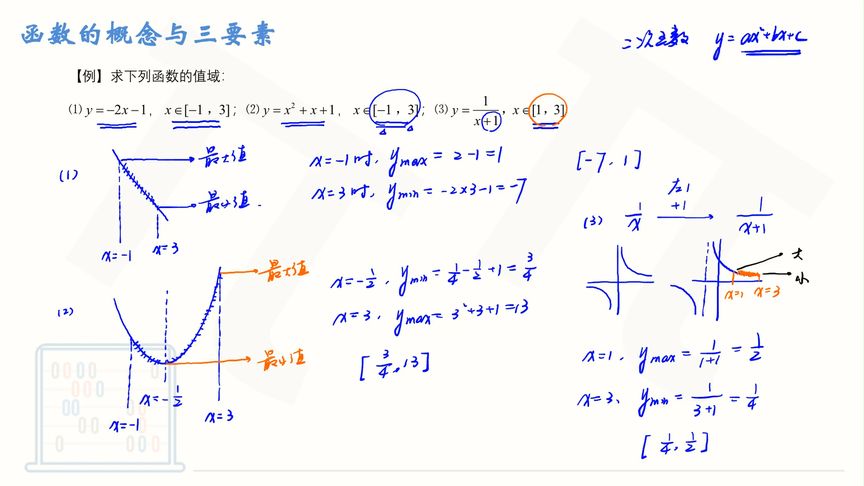 函数的概念与三要素
二次函数 y=ax²+bx+c
【例】求下列函数的值域:
(1) y=-2x-1, x∈[-1,3]; (2) y=x²+x+1, x∈[-1,3]; (3) y=1/(x+1), x∈[1,3]
(1)
最大值
最小值.
x=-1
x=3
x=-1时, ymax=2-1=1
x=3时, ymin=-2×3-1=-7
[-7,1]
(2)
最大值
最小值
x=-1
x=-1/2
x=3
x=-1/2, ymin=1/4-1/2+1=3/4
x=3, ymax=3²+3+1=13
[3/4,13]
(3) 1/x 左1 +1 1/(x+1)
大
小
x=1 x=3
x=1, ymax=1/(1+1)=1/2
x=3, ymin=1/(3+1)=1/4
[1/4,1/2]